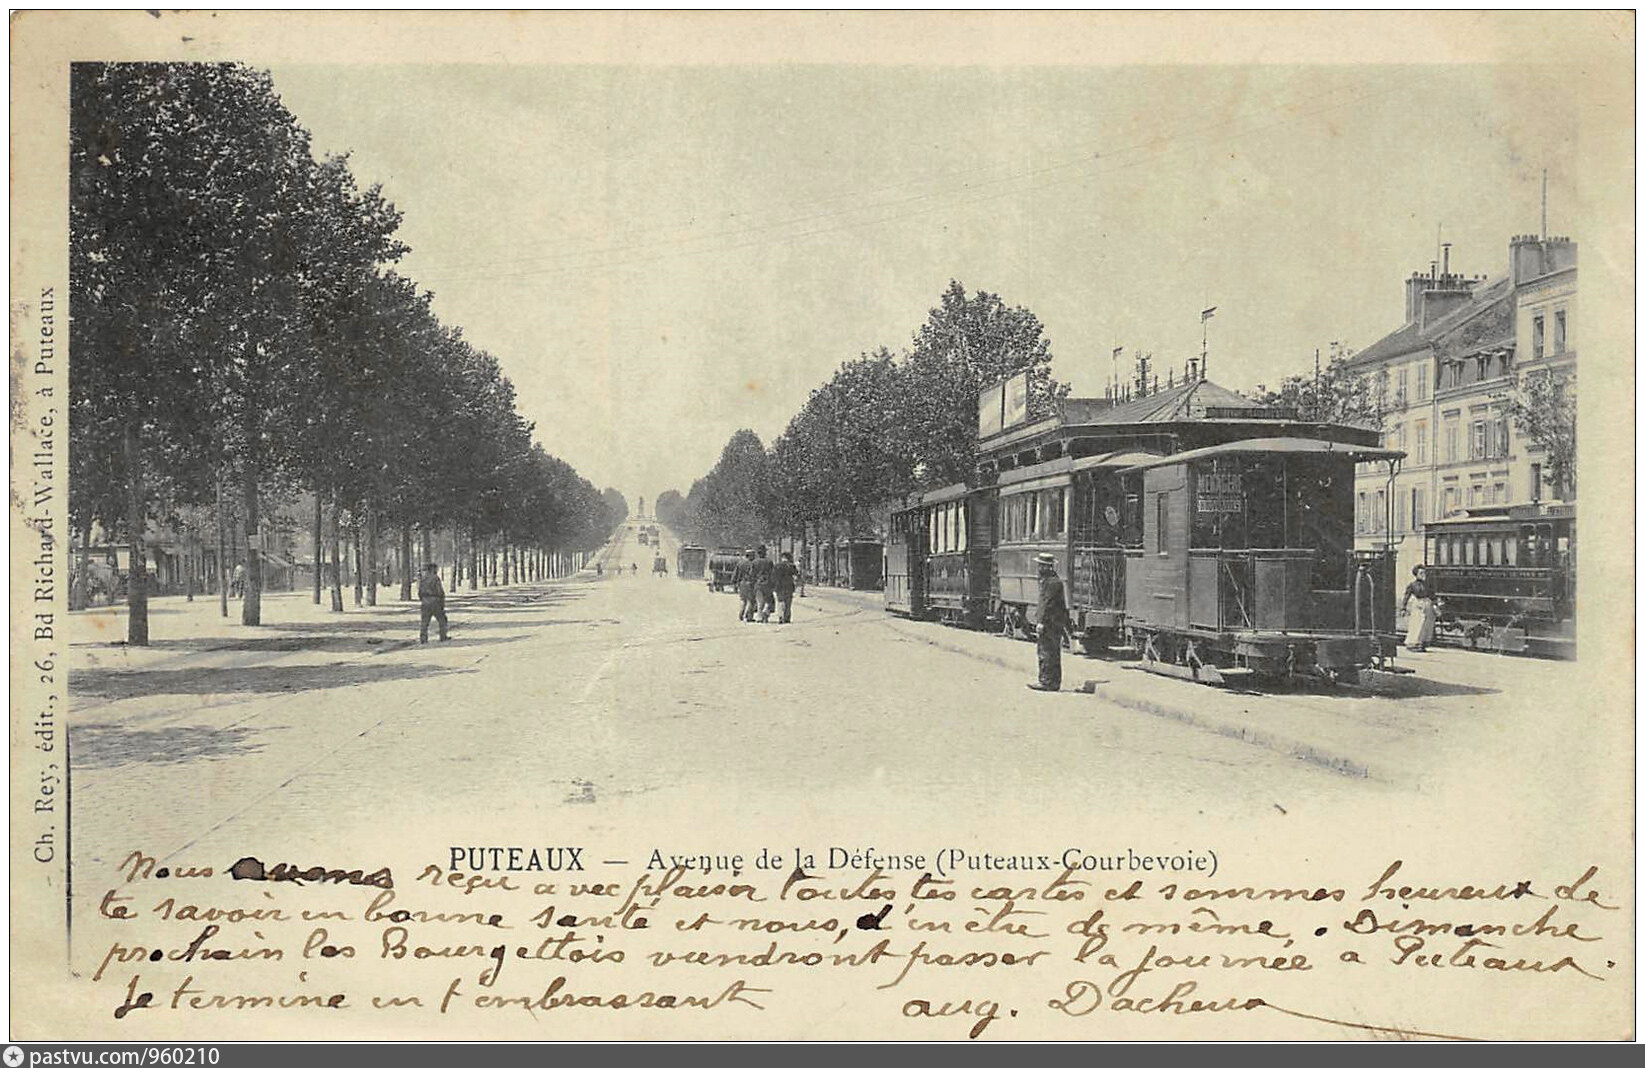 Ch. Rey, édit., 26, Bd Richard-Wallace, à Puteaux
MÉNAGERS
PUTEAUX — Avenue de la Défense (Puteaux-Courbevoie)
Nous avons reçu avec plaisir toutes tes cartes et sommes heureux de
te savoir en bonne santé et nous, d'en être de même. Dimanche
prochain les Bourgettois viendront passer la journée à Puteaux.
Je termine en t'embrassant aug. Dacheux
pastvu.com/960210